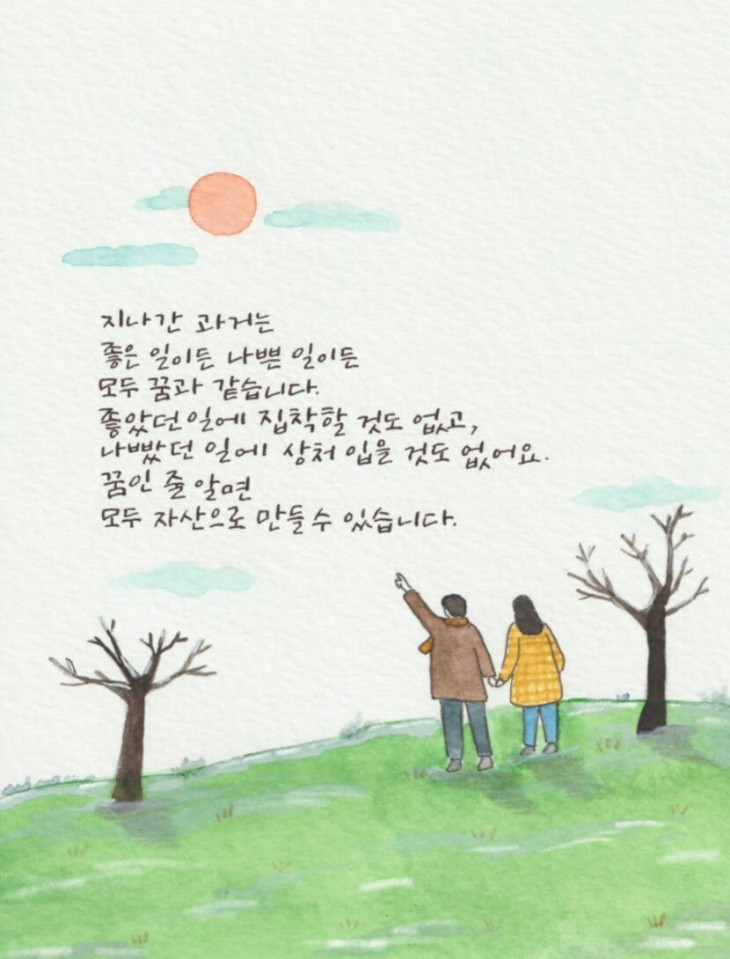 지나간 과거는
좋은 일이든 나쁜 일이든
모두 꿈과 같습니다.
좋았던 일에 집착할 것도 없고,
나빴던 일에 상처 입을 것도 없어요.
꿈인 줄 알면
모두 자산으로 만들 수 있습니다.